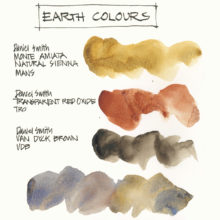 EARTH COLOURS
Daniel Smith
MONTE AMIATA
NATURAL SIENNA
MANS
Daniel Smith
TRANSPARENT RED OXIDE
TRO
Daniel Smith
VAN DICK BROWN
VDB